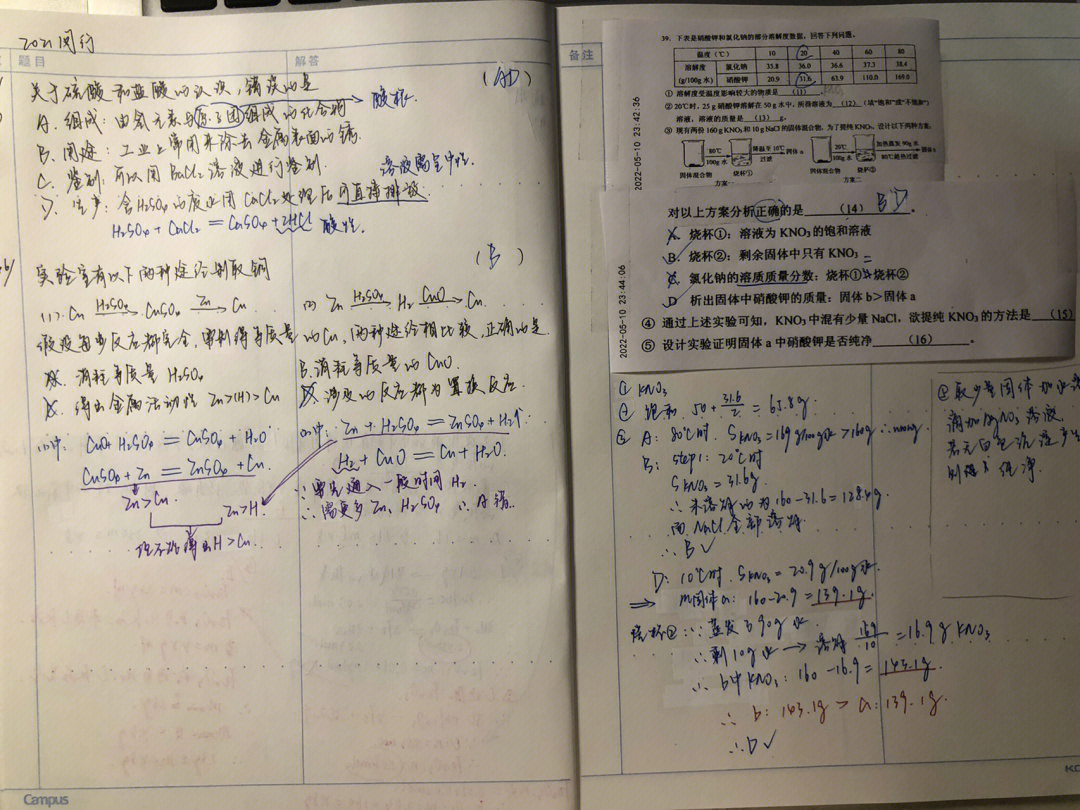 2021 闵行
题目
解答
关于硫酸和盐酸的认识,错误的是
(AD)
A. 组成:由氢元素与原子团组成的化合物→酸根
B. 用途:工业上常用来除去金属表面的锈.
C. 鉴别:可以用BaCl₂溶液进行鉴别.
溶液需呈中性.
D. 生产:含H₂SO₄的废水用CaCl₂处理后可直接排放
H₂SO₄ + CaCl₂ = CaSO₄ + 2HCl 酸性.
实验室有以下两种途径制取铜
(B)
(1) Cu H₂SO₄→ CuSO₄ Zn→ Cu
(2) Zn H₂SO₄→ H₂ CuO→ Cu.
假设每步反应都完全,要制得等质量的Cu,两种途径相比较,正确的是.
A. 消耗等质量H₂SO₄
B. 消耗等质量的CuO.
C. 得出金属活动性 Zn>(H)>Cu
D. 涉及的反应都为置换反应.
(1)中: CuO + H₂SO₄ = CuSO₄ + H₂O
CuSO₄ + Zn = ZnSO₄ + Cu.
(2)中: Zn + H₂SO₄ = ZnSO₄ + H₂↑
H₂ + CuO = Cu + H₂O.
Zn>Cu.
Zn>H.
∴要先通入一段时间H₂.
∴需更多Zn, H₂SO₄ ∴A错.
但不能得出H>Cu.
Campus
备注
39. 下表是硝酸钾和氯化钠的部分溶解度数据,回答下列问题。
温度(℃) 10 20 40 60 80
溶解度 氯化钠 35.8 36.0 36.6 37.3 38.4
(g/100g 水) 硝酸钾 20.9 31.6 63.9 110.0 169.0
① 溶解度受温度影响较大的物质是 (11) 。
② 20℃时,25 g 硝酸钾溶解在 50 g 水中,所得溶液为 (12) (填“饱和”或“不饱和”)
溶液,溶液的质量是 (13) g。
③ 现有两份 160 g KNO₃和 10 g NaCl 的固体混合物,为了提纯 KNO₃,设计以下两种方案。
80℃ 100g 水 降温至 10℃ 过滤 固体 a
20℃ 100g 水 加热蒸发 90g 水 80℃趁热过滤 固体 b
固体混合物 烧杯① 固体混合物 烧杯②
方案一 方案二
2022-05-10 23:42:36
对以上方案分析正确的是 (14) BD 。
A. 烧杯①:溶液为 KNO₃ 的饱和溶液
B. 烧杯②:剩余固体中只有 KNO₃
C. 氯化钠的溶质质量分数:烧杯①>烧杯②
D 析出固体中硝酸钾的质量:固体 b>固体 a
④ 通过上述实验可知,KNO₃中混有少量 NaCl,欲提纯 KNO₃的方法是 (15)
⑤ 设计实验证明固体 a 中硝酸钾是否纯净 (16) 。
2022-05-10 23:44:06
① KNO₃
② 饱和 50 + 31.6/2 = 65.8g
③ A: 80℃时. S KNO₃ = 169g/100g水 > 160g
B: step1: 20℃时
S KNO₃ = 31.6g
∴未溶解的为160-31.6=128.4g
而NaCl全部溶解
∴B✓
D: 10℃时. S KNO₃ = 20.9g/100g水.
⇒ m固体a: 160-20.9=139.1g
烧杯② ∵蒸发了90g水
∴剩10g水→溶解 169/10 = 16.9g KNO₃
∴b中KNO₃: 160-16.9=143.1g
∴ b: 143.1g > a: 139.1g.
∴D✓
取少量固体加水
滴加AgNO₃溶液
若无白色沉淀产生